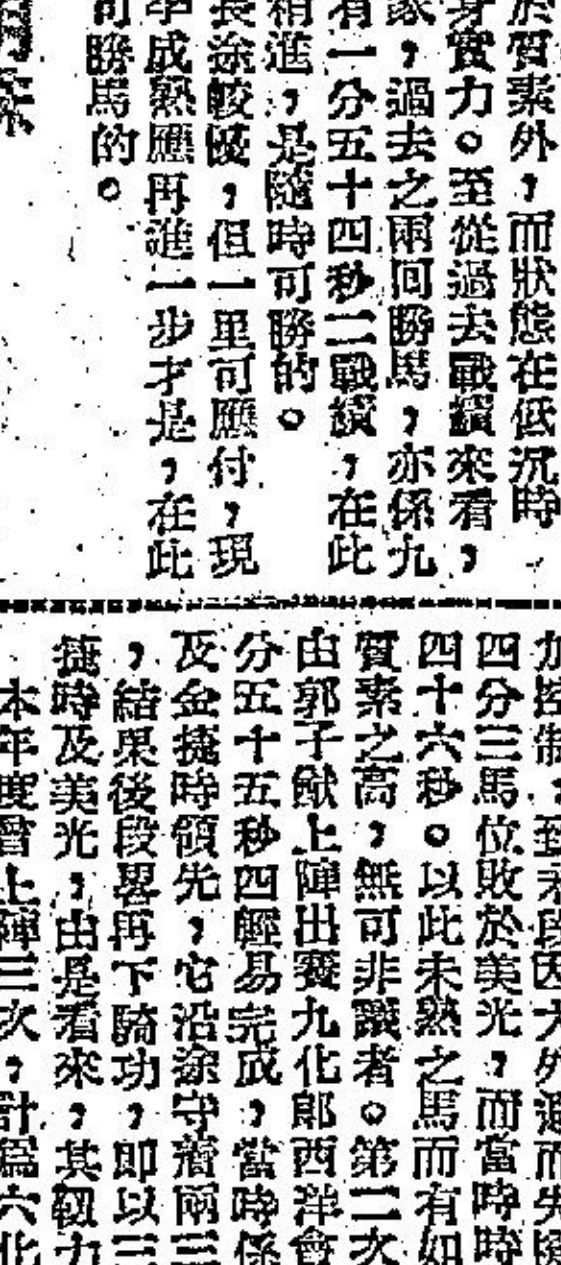 於質素外，而狀態在低沉時
身實力。至從過去戰績來看，
家，過去之兩回勝馬，亦係九
有一分五十四秒二戰績，在此
稍進，是隨時可勝的。
長途較優，但一里可應付，現
季成熟應再進一步才是，在此
可勝馬的。
加控制，致末段因大外過而失
四分三馬位敗於美光，而當時時
四十六秒。以此未熟之馬而有如
質素之高，無可非議者。第二次
由郭子猷上陣出賽九化郎西洋會
分五十五秒四輕易完成，當時係
及金捷時領先，它沿途守着兩三
，結果後段畧再下騎功，即以三
捷時及美光，由是看來，其韌力
本年度曾上陣三次，計爲六化